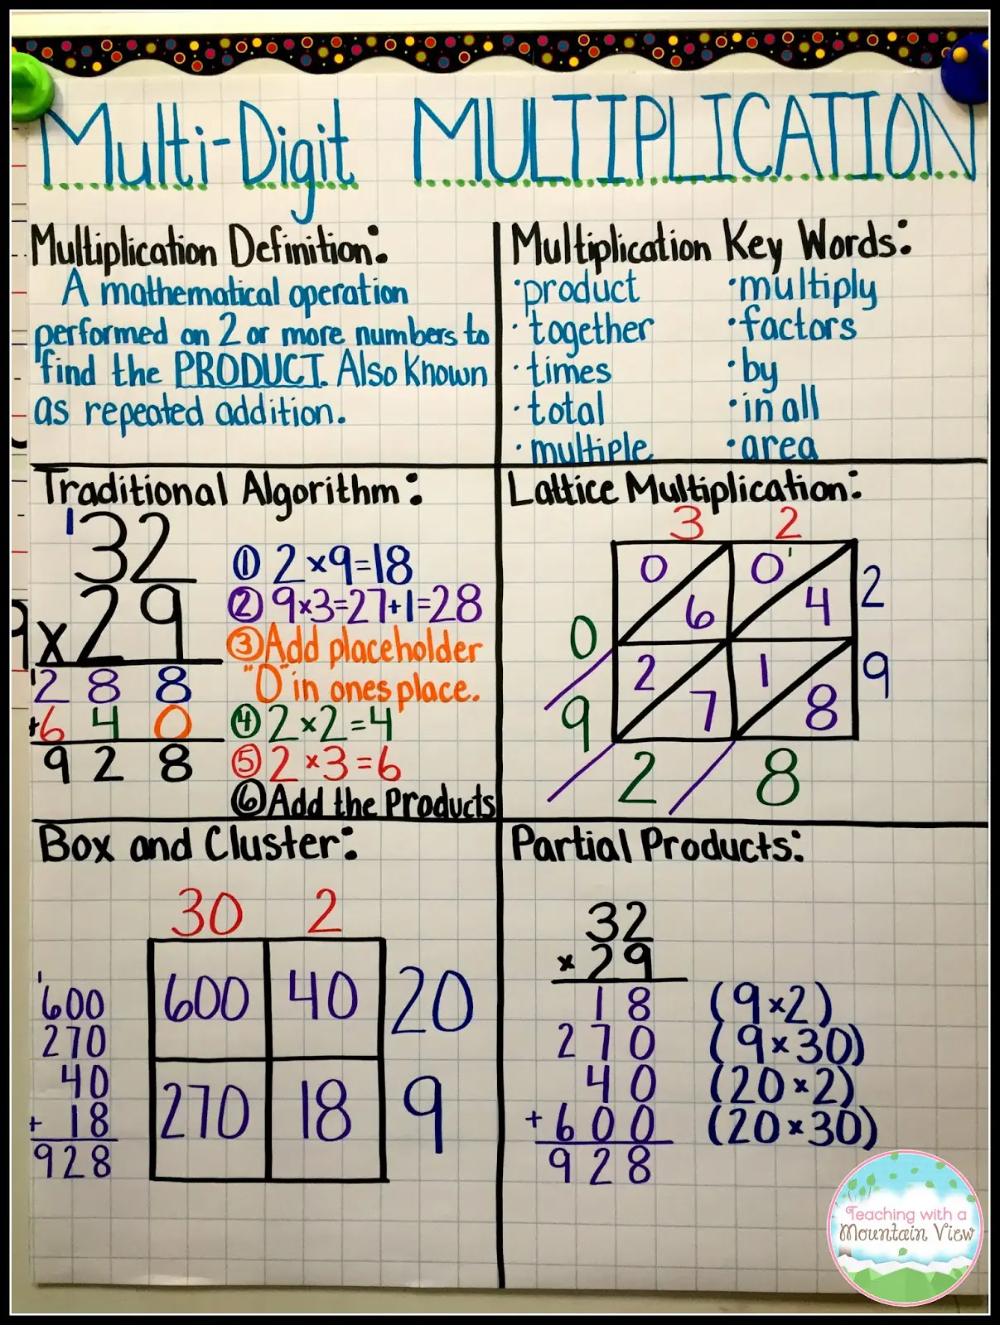 Multi-Digit MULTIPLICATION
Multiplication Definition:
A mathematical operation
performed on 2 or more numbers to
find the PRODUCT. Also known
as repeated addition.
Multiplication Key Words:
·product ·multiply
·together ·factors
·times ·by
·total ·in all
·multiple ·area
Traditional Algorithm:
1
32
x29
1
288
+640
928
① 2×9=18
② 9×3=27+1=28
③ Add placeholder
"0" in ones place.
④ 2×2=4
⑤ 2×3=6
⑥ Add the Products
Lattice Multiplication:
3 2
0 6 0 1 4 2
0
2 7 1 8 9
9
2 8
Box and Cluster:
30 2
600 40 20
270 18 9
1
600
270
40
+ 18
928
Partial Products:
32
×29
18 (9×2)
270 (9×30)
40 (20×2)
+600 (20×30)
928
Teaching with a
Mountain View